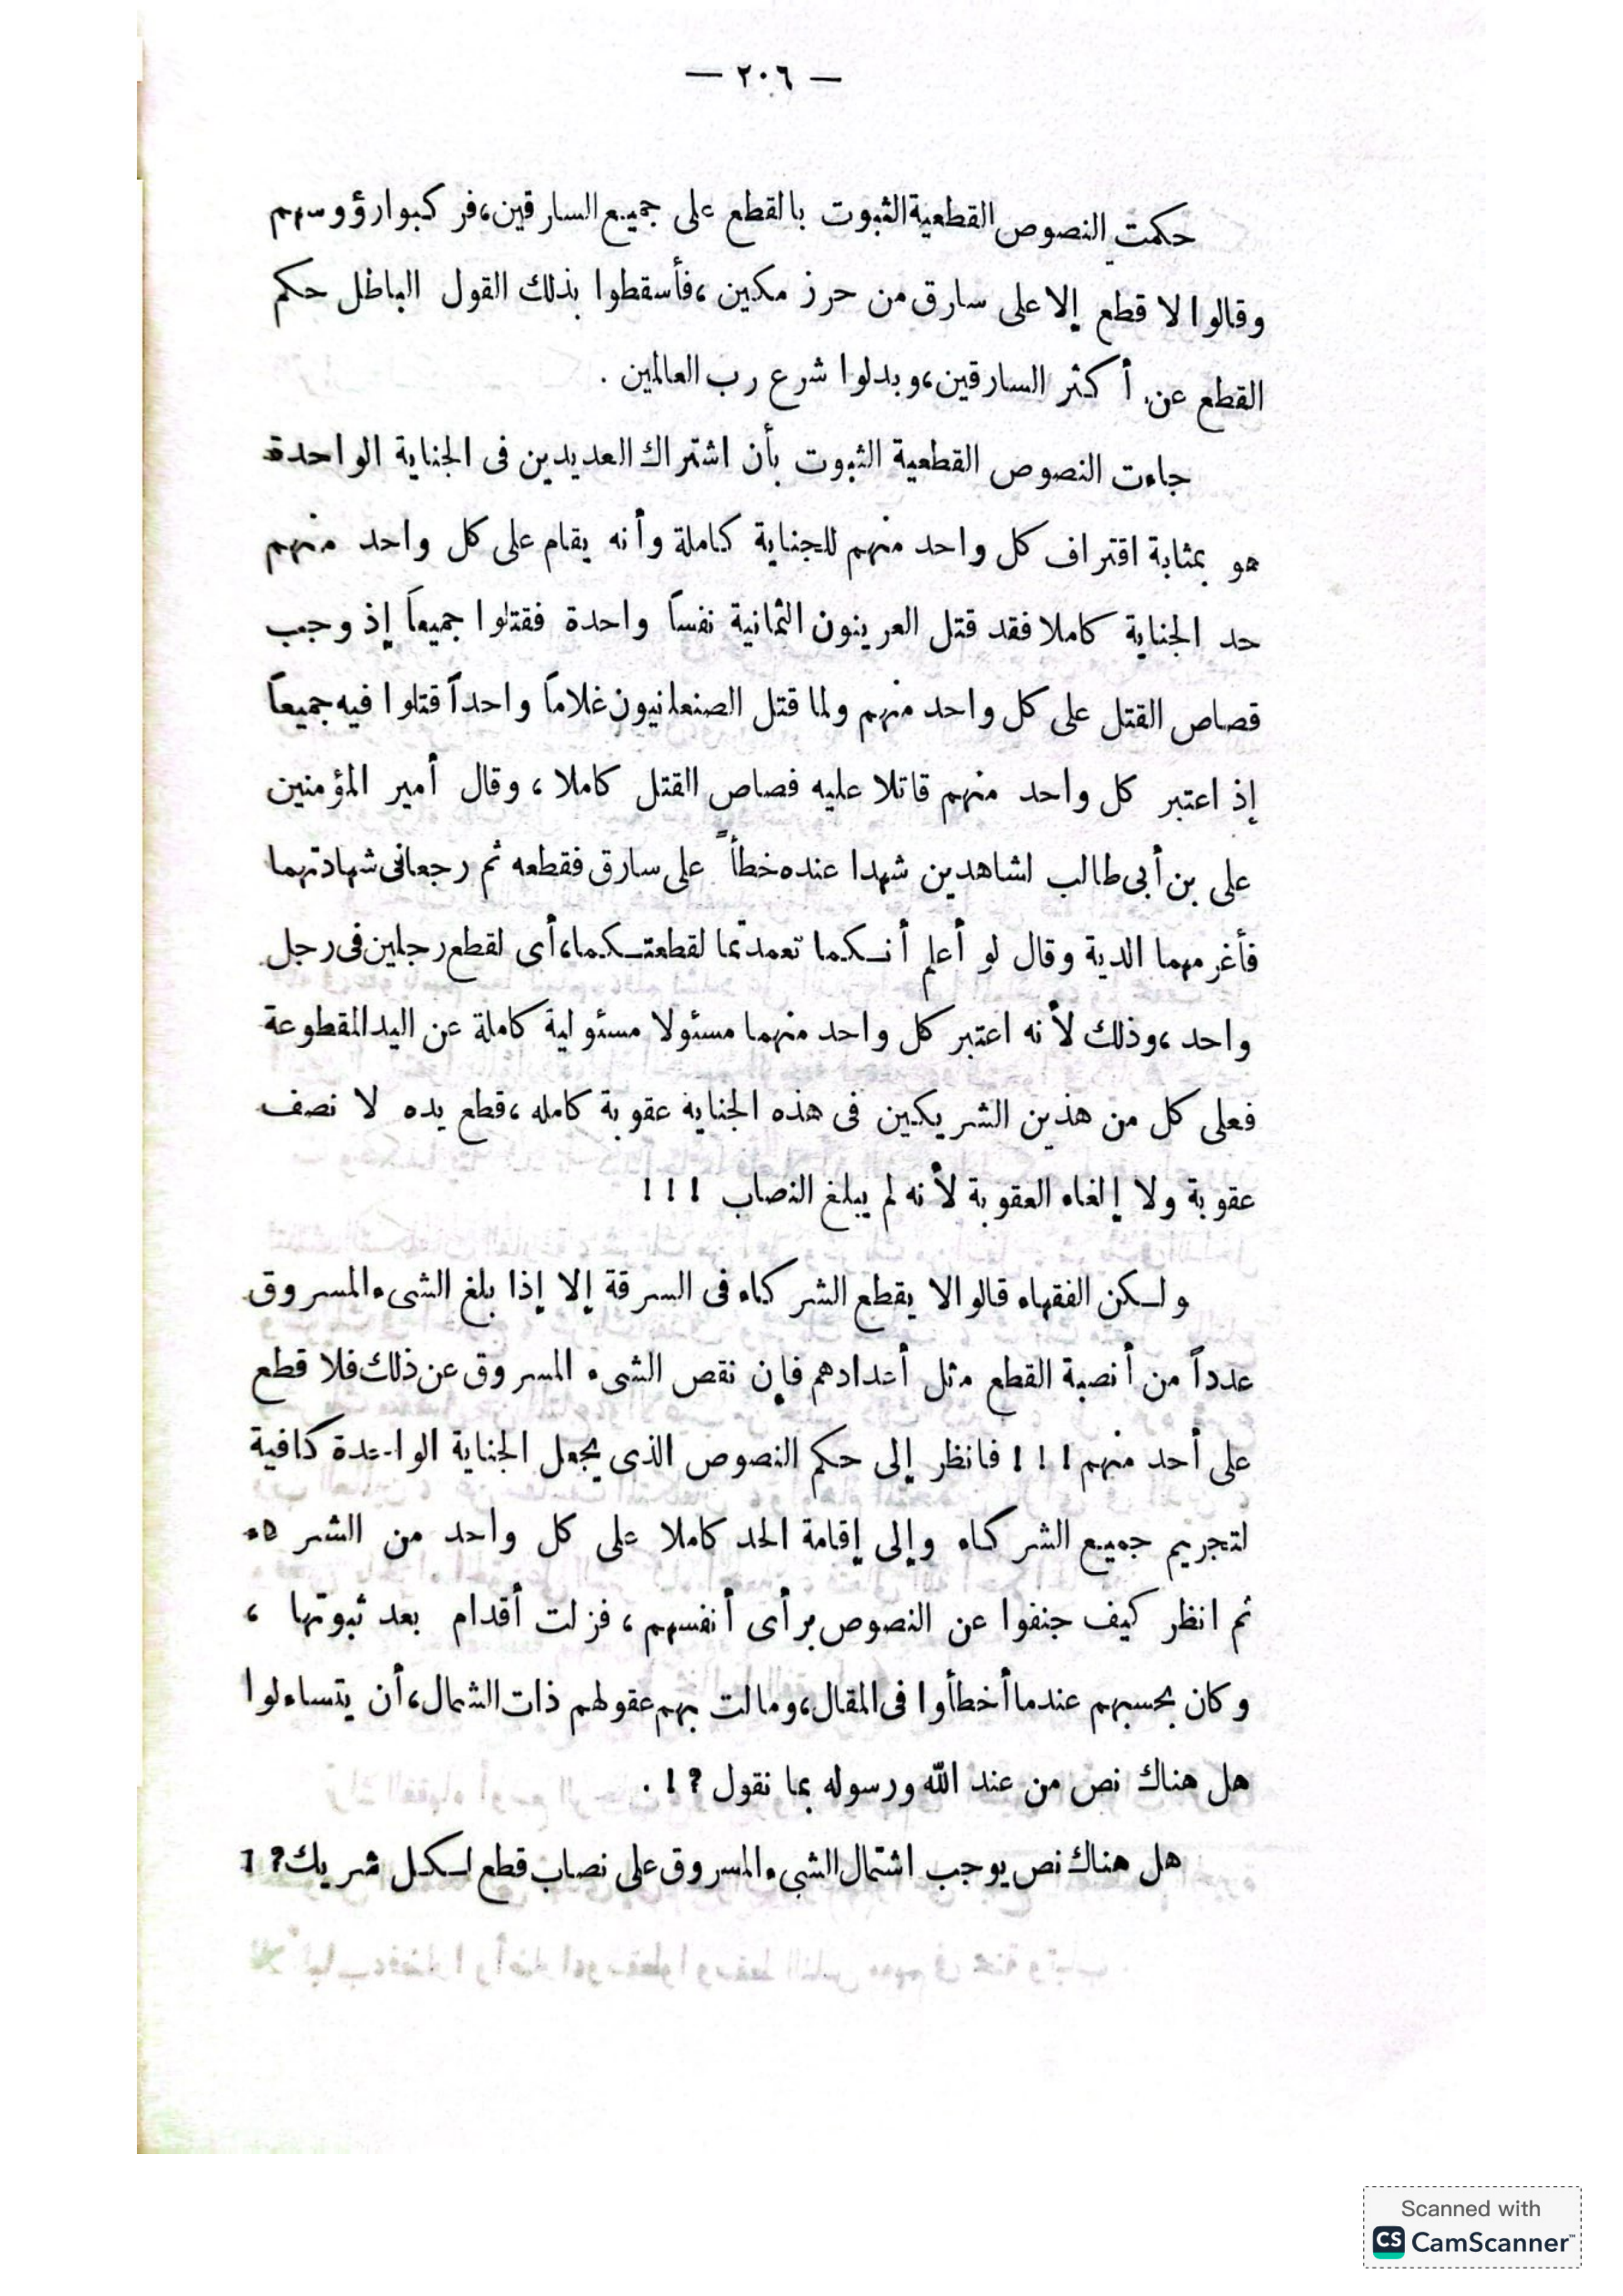 — ٢٠٦ —
حكمت النصوص القطعية الثبوت بالقطع على جميع السارقين، فركبوا رؤوسهم
وقالوا لا قطع إلا على سارق من حرز مكين، فأسقطوا بذلك القول الباطل حكم
القطع عن أكثر السارقين، وبدلوا شرع رب العالمين .
جاءت النصوص القطعية الثبوت بأن اشتراك العديدين فى الجناية الواحدة
هو بمثابة اقتراف كل واحد منهم للجناية كاملة وأنه يقام على كل واحد منهم
حد الجناية كاملا فقد قتل العرينون الثمانية نفساً واحدة فقتلوا جميعاً إذ وجب
قصاص القتل على كل واحد منهم ولما قتل الصنعانيون غلاماً واحداً قتلوا فيه جميعاً
إذ اعتبر كل واحد منهم قاتلا عليه قصاص القتل كاملا ، وقال أمير المؤمنين
على بن أبى طالب لشاهدين شهدا عنده خطأً على سارق فقطعه ثم رجعا فى شهادتهما
فأغرمهما الدية وقال لو أعلم أنكما تعمدتما لقطعتكما، أى لقطع رجلين فى رجل
واحد ، وذلك لأنه اعتبر كل واحد منهما مسئولا مسئولية كاملة عن اليد المقطوعة
فعلى كل من هذين الشريكين فى هذه الجناية عقوبة كامله ، قطع يده لا نصف
عقوبة ولا إلغاء العقوبة لأنه لم يبلغ النصاب ! ! !
ولكن الفقهاء قالوا لا يقطع الشركاء فى السرقة إلا إذا بلغ الشىء المسروق
عدداً من أنصبة القطع مثل أعدادهم فإن نقص الشىء المسروق عن ذلك فلا قطع
على أحد منهم ! ! ! فانظر إلى حكم النصوص الذى يجعل الجناية الواحدة كافية
لتجريم جميع الشركاء وإلى إقامة الحد كاملا على كل واحد من
ثم انظر كيف جنفوا عن النصوص برأى أنفسهم ، فزلت أقدام بعد ثبوتها ،
وكان بحسبهم عندما أخطأوا فى المقال، ومالت بهم عقولهم ذات الشمال، أن يتساءلوا
هل هناك نص من عند الله ورسوله بما نقول ؟ ! .
هل هناك نص يوجب اشتمال الشىء المسروق على نصاب قطع لكل شريك ؟ !
Scanned with
CS CamScanner™